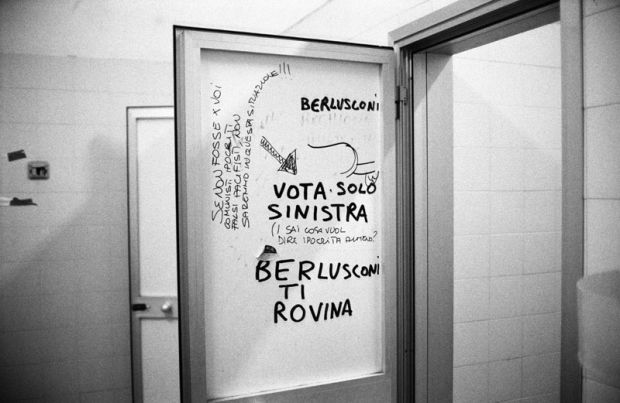 SE NON FOSSE X VOI
COMUNISTI IPOCRITI
FALSI PACIFISTI, NON
SAREMMO IN QUESTA SITUAZIONE!!!
BERLUSCONI
VOTA. SOLO
SINISTRA
(I SAI COSA VUOL
DIRE IPOCRITA ALMENO?
BERLUSCONI
TI
ROVINA